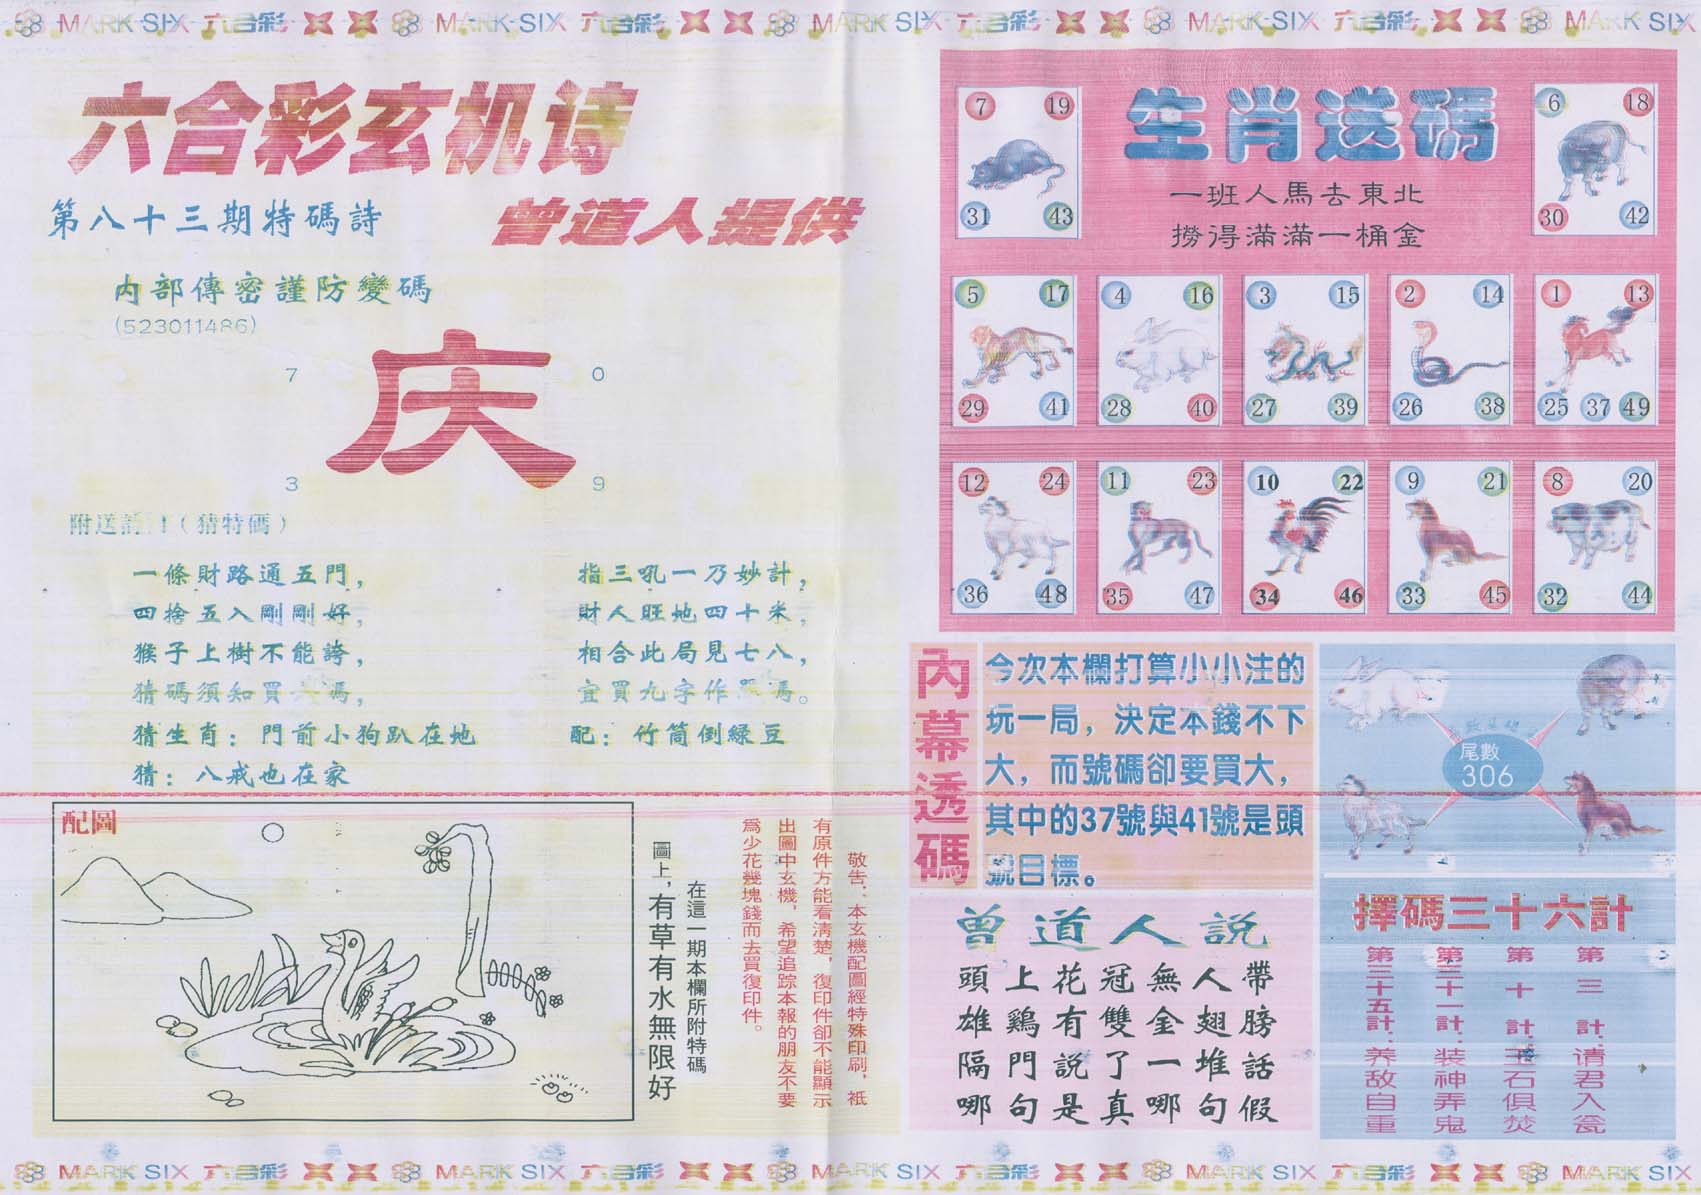 MARK SIX 六合彩 MARK SIX 六合彩 MARK SIX 六合彩 MARK SIX 六合彩 MARK SIX
六合彩玄机诗
第八十三期特碼詩
曾道人提供
内部傳密謹防變碼
(523011486)
7 0
庆
3 9
附送詩
(猜特碼)
一條財路通五門,
四捨五入剛剛好,
猴子上樹不能誇,
猜碼須知買 馮,
指三吼一乃妙計,
財人旺地四十米,
相合此局見七八,
宜買九字作 馮。
猜生肖: 門前小狗趴在地
配: 竹筒倒綠豆
猜: 八戒也在家
配圖
在這一期本欄所附特碼
圖上,有草有水無限好
敬告: 本玄機配圖經特殊印刷, 祇
有原件方能看清楚, 復印件卻不能顯示
出圖中玄機, 希望追踪本報的朋友不要
爲少花幾塊錢而去買復印件。
生肖送碼
一班人馬去東北
撈得滿滿一桶金
7 19
31 43
6 18
30 42
5 17
29 41
4 16
28 40
3 15
27 39
2 14
26 38
1 13
25 37 49
12 24
36 48
11 23
35 47
10 22
34 46
9 21
33 45
8 20
32 44
內幕透碼
今次本欄打算小小注的
玩一局, 決定本錢不下
大, 而號碼卻要買大,
其中的37號與41號是頭
號目標。
尾數
306
曾道人説
頭上花冠無人帶
雄鷄有雙金翅膀
隔門説了一堆話
哪句是真哪句假
擇碼三十六計
第三計:请君入瓮
第十計:玉石俱焚
第三十一計:装神弄鬼
第三十五計:养敌自重
MARK SIX 六合彩 MARK SIX 六合彩 MARK SIX 六合彩 MARK SIX 六合彩 MARK SIX